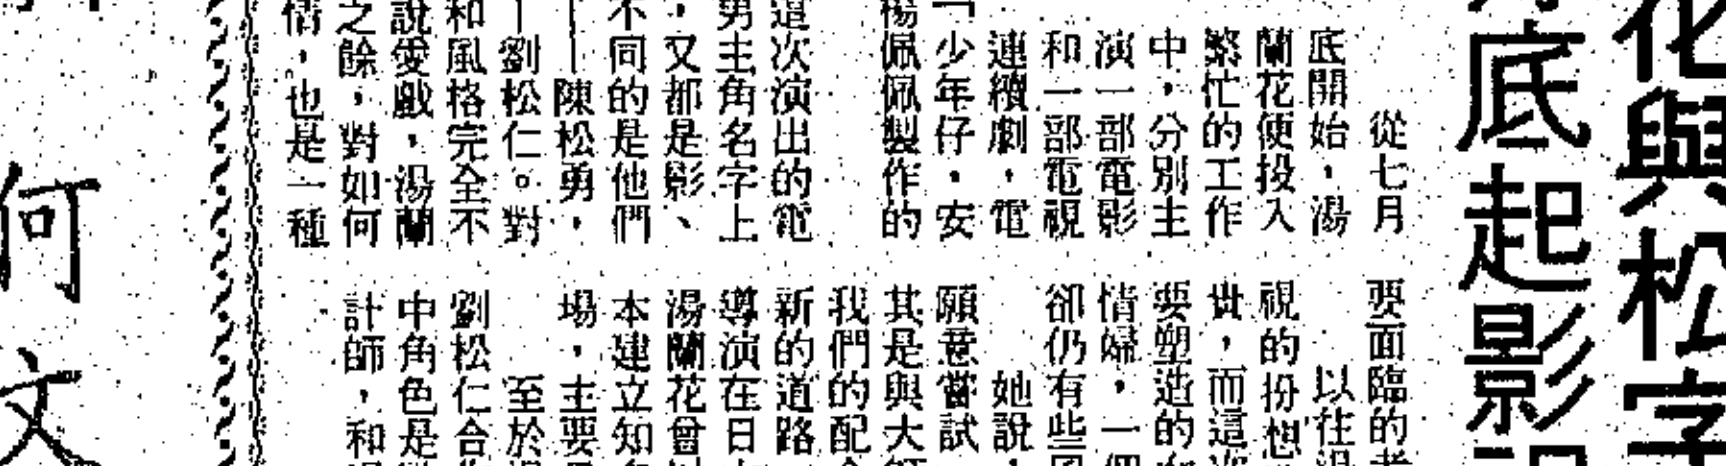 花與松字
底起影視
從七月
底開始,湯
蘭花便投入
繁忙的工作
中,分別主
演一部電影
和一部電視
連續劇,電
「少年仔.安
楊佩佩製作的
這次演出的電
男主角名字上
,又都是影、
不同的是他們
—陳松勇,
—劉松仁。對
和風格完全不
說愛戲,湯蘭
之餘,對如何
情,也是一種
要面臨的考
以往湯
視的扮相
貴,而這次
要塑造的
情婦,一個
卻仍有些
她說,
願意嘗試
其是與大
我們的配合
新的道路
導演在日
湯蘭花曾以
本建立知名
場,主要
至於
劉松仁合作
中角色是
計師,和
何文